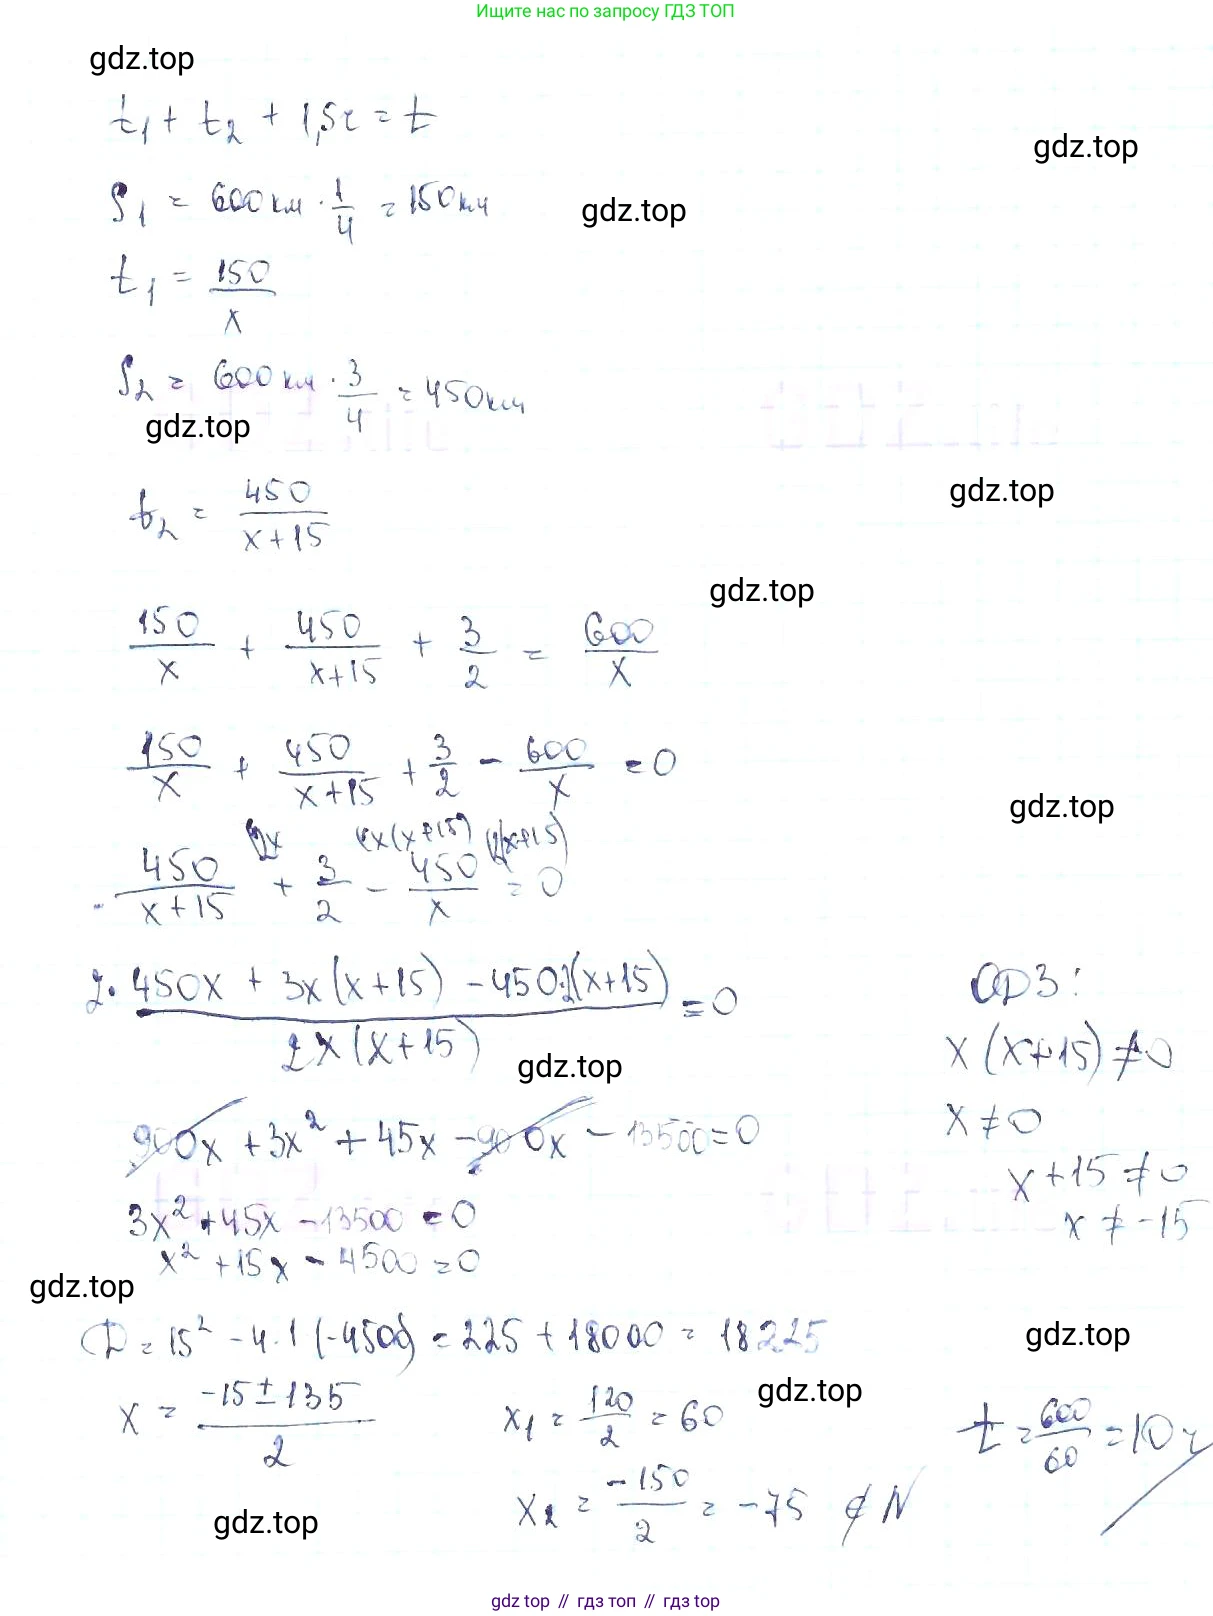 Ищите нас по запросу ГДЗ ТОП
gdz.top
t₁ + t₂ + 1,5ч = t
gdz.top
S₁ = 600км · 1/4 = 150км
gdz.top
t₁ = 150/x
S₂ = 600км · 3/4 = 450км
gdz.top
gdz.top
t₂ = 450/(x+15)
gdz.top
150/x + 450/(x+15) + 3/2 = 600/x
150/x + 450/(x+15) + 3/2 - 600/x = 0
gdz.top
2x x(x+15) 2(x+15)
450/(x+15) + 3/2 - 450/x = 0
(2·450x + 3x(x+15) - 450·2(x+15))/(2x(x+15)) = 0
ОДЗ:
x(x+15) ≠ 0
gdz.top
900x + 3x² + 45x - 900x - 13500 = 0
x ≠ 0
x + 15 ≠ 0
3x² + 45x - 13500 = 0
x ≠ -15
x² + 15x - 4500 = 0
gdz.top
D = 15² - 4·1(-4500) = 225 + 18000 = 18225
gdz.top
x = (-15 ± 135)/2
x₁ = 120/2 = 60
gdz.top
t = 600/60 = 10ч
x₂ = -150/2 = -75 ∉ N
gdz.top
gdz.top // гдз топ // гдз.top